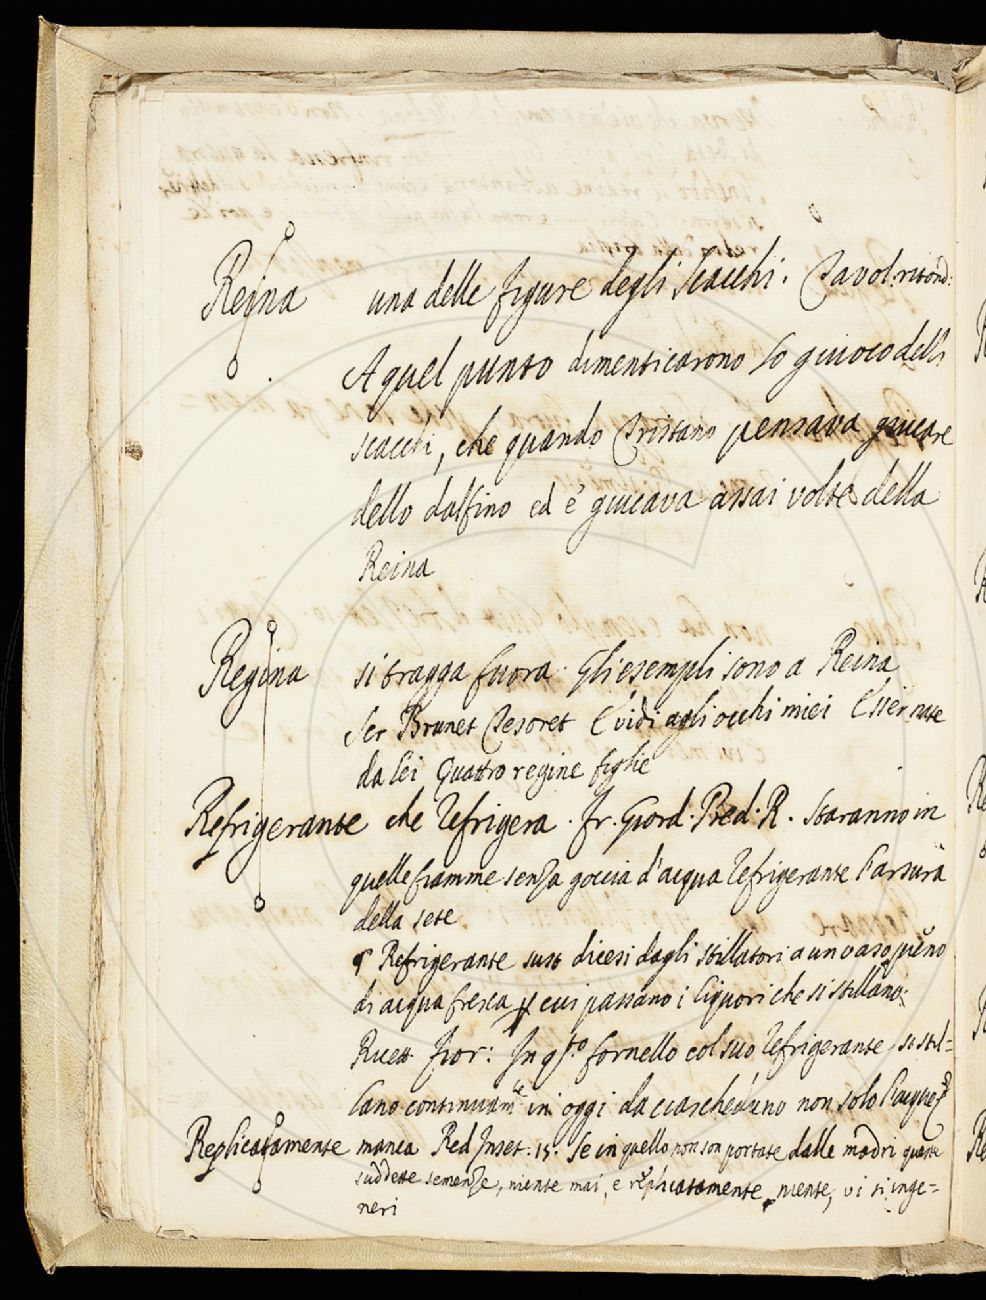 Reina una delle figure degli scacchi. Tavol: ritond:
A quel punto dimenticarono lo giuoco delli
scacchi, che quando Tristano pensava giucare
dello dalfino ed e' giucava assai volte della
Reina
Regina si tragga fuora. Gli esempli sono a Reina
Ser Brunet Tesoret E vidi agli occhi miei Esser nate
da lei Quattro regine figlie
Refrigerante che refrigera. fr. Giord. Pred. R. Staranno in
quelle fiamme senza goccia d'acqua refrigerante l'arsura
della sete
¶ Refrigerante sust dicesi dagli stillatori a un vaso pieno
di acqua fresca p cui passano i liquori che si stillano:
Ricett Fior: In qsto fornello col suo refrigerante, si stil=
lano continuamte in oggi da ciascheduno non solo l'acque
Replicatamente manca Red Inset: 15. Se in quello non son portate dalle madri queste
suddette semenze, niente mai, e replicatamente niente, vi si inge=
neri